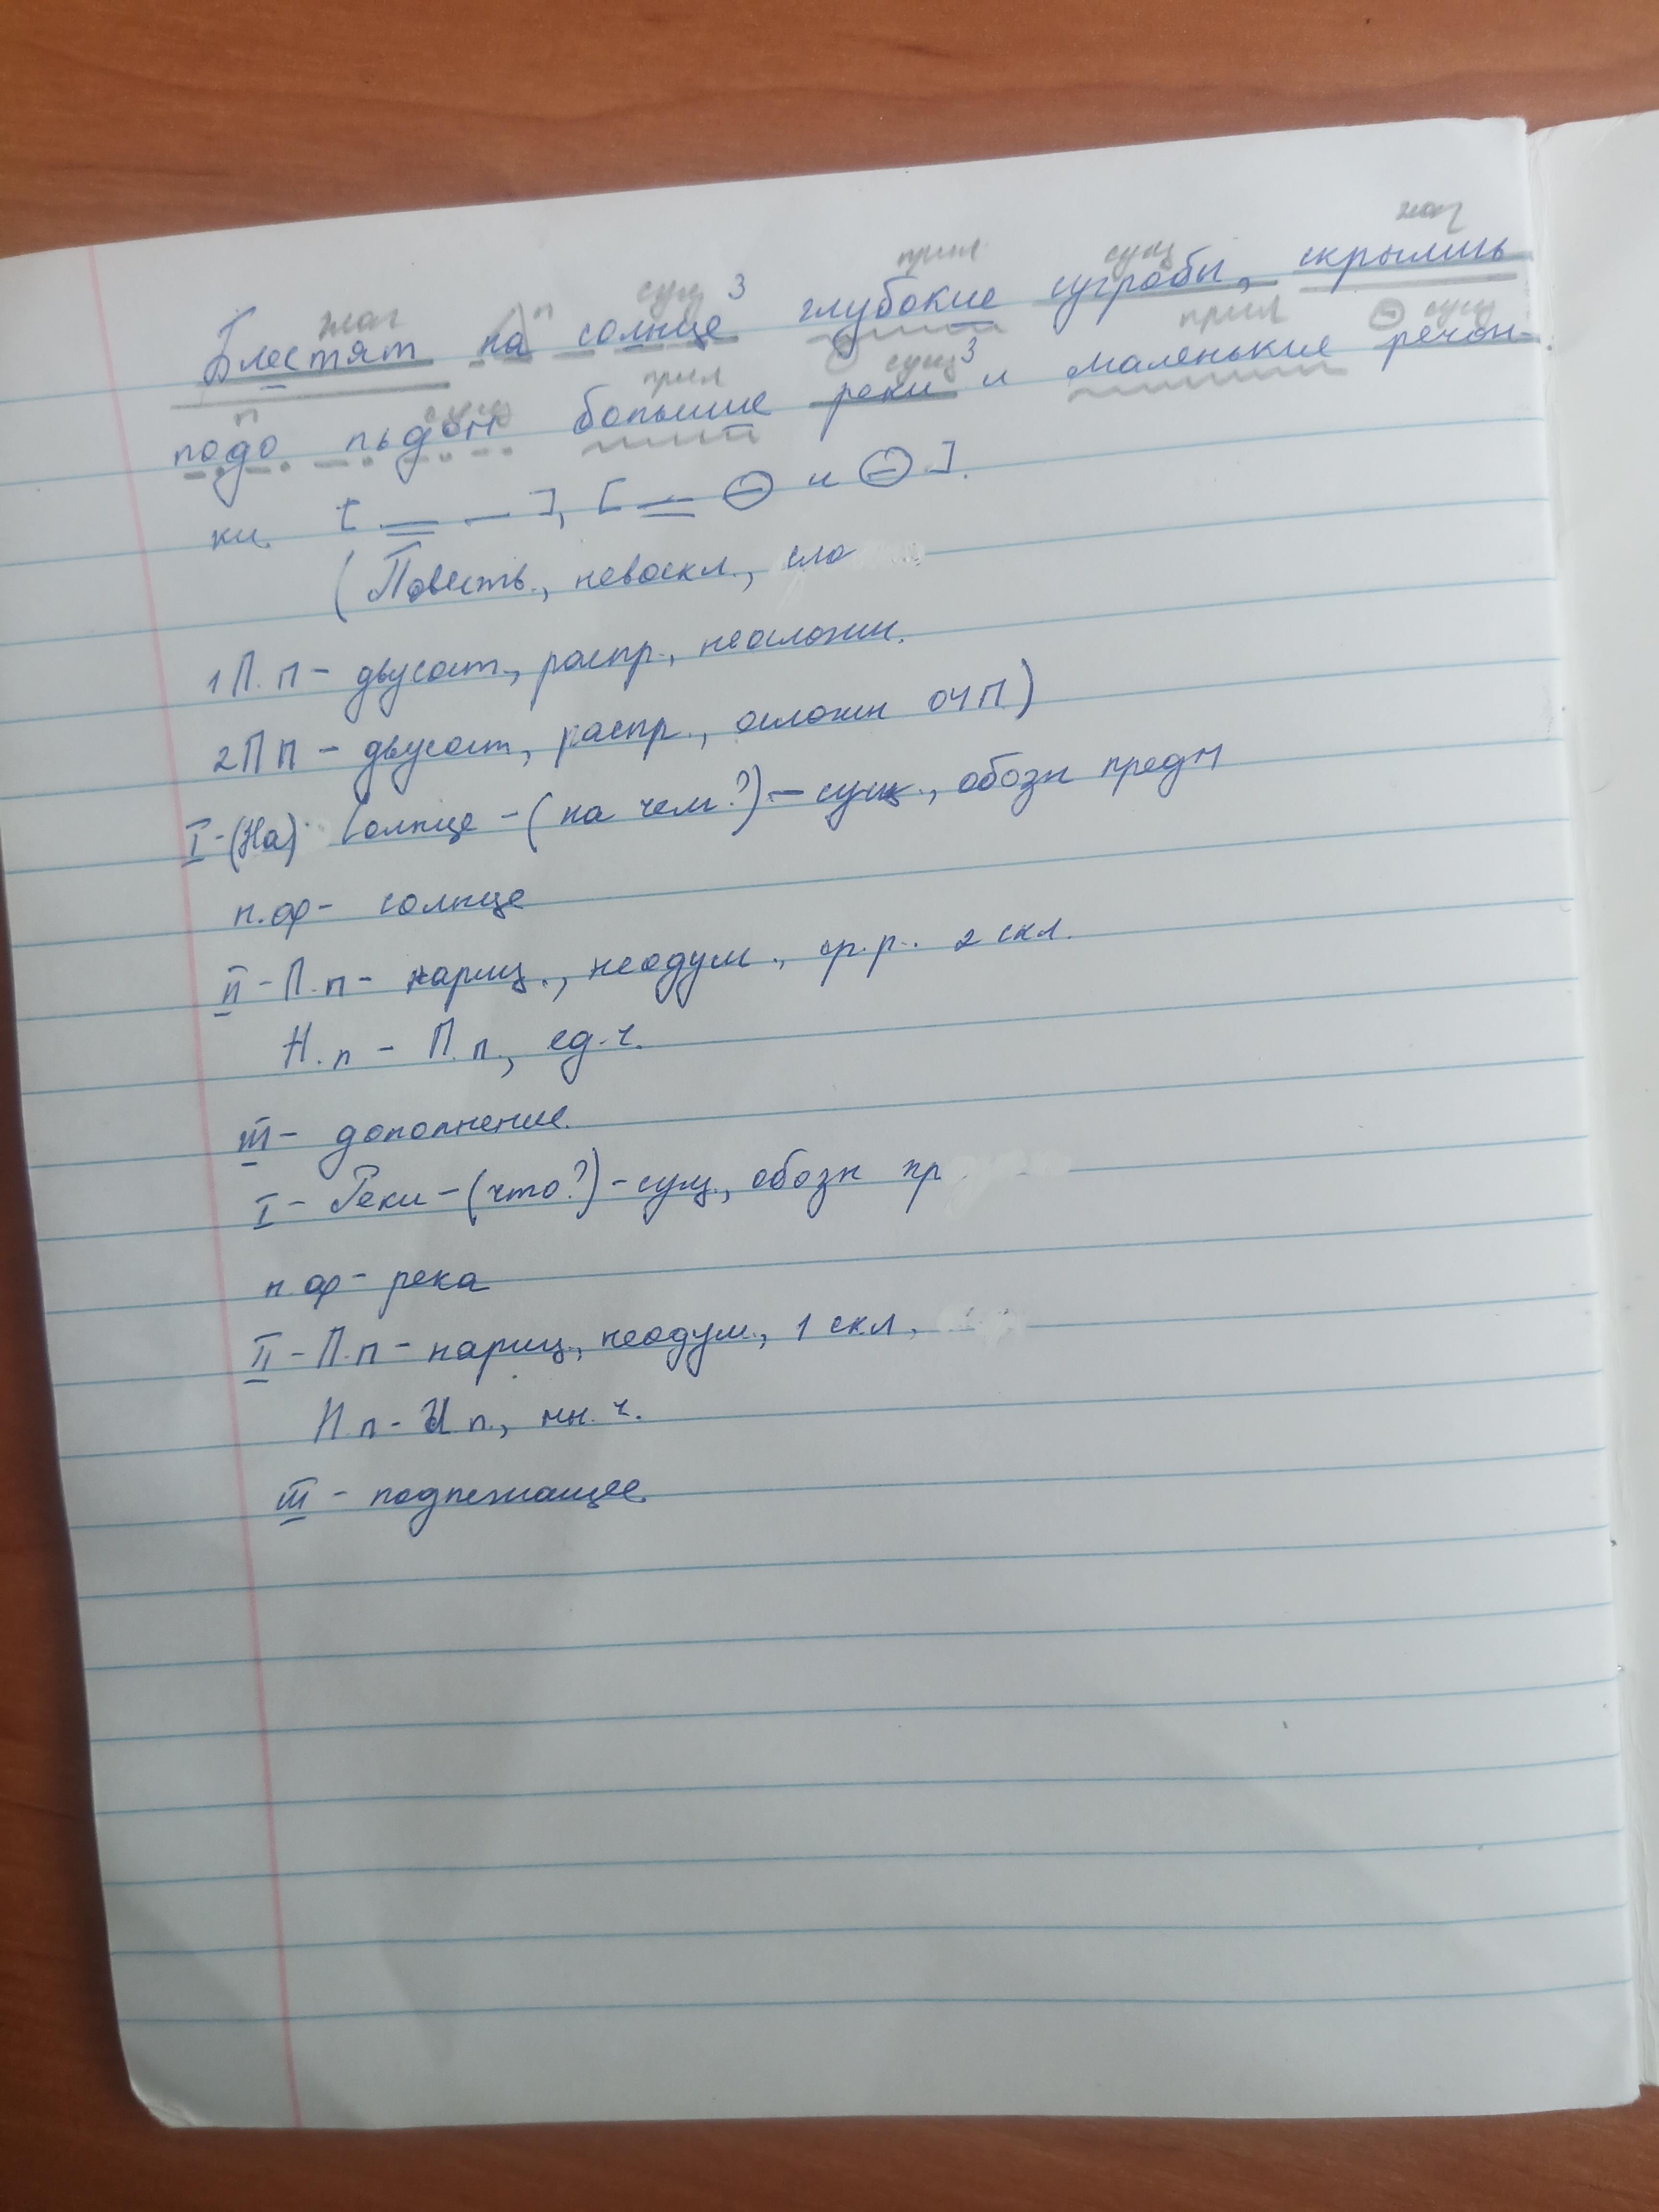 глаг п сущ прил сущ глаг
Блестят на солнце³ глубокие сугробы, скрылись
п сущ прил сущ прил сущ
подо льдом большие реки³ и маленькие речон-
ки. [ = – ], [ = ⊖ и ⊖ ].
(Повеств., невоскл., сло
1 П.п – двусост., распр., неосложн.
2 П П – двусост, распр., осложн ОЧП)
I - (На) Солнце – (на чем?) – сущ., обозн предм
н.ф – солнце
II – П.п – нариц., неодуш., ср.р. 2 скл.
Н.п – П.п., ед.ч.
III – дополнение.
I – Реки – (что?) – сущ., обозн пр
н.ф – река
II – П.п – нариц., неодуш., 1 скл,
Н.п - И п., мн. ч.
III – подлежащее